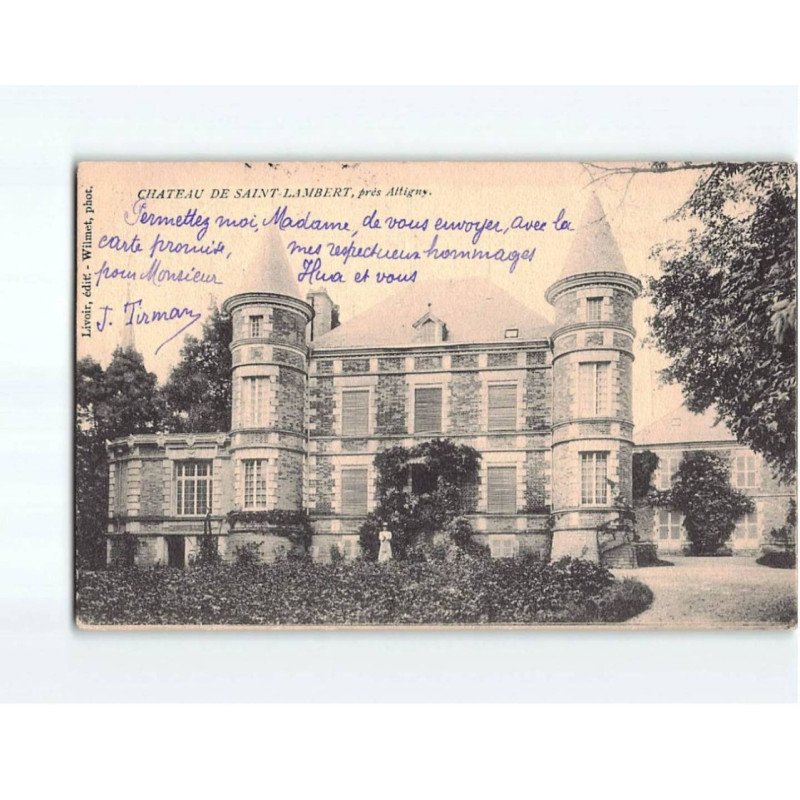 CHATEAU DE SAINT-LAMBERT, près Attigny.
Permettez moi, Madame, de vous envoyer, avec la
carte promise, mes respectueux hommages
pour Monsieur Hua et vous
J. Tirman
Livoir, édit. - Wilmet, phot.